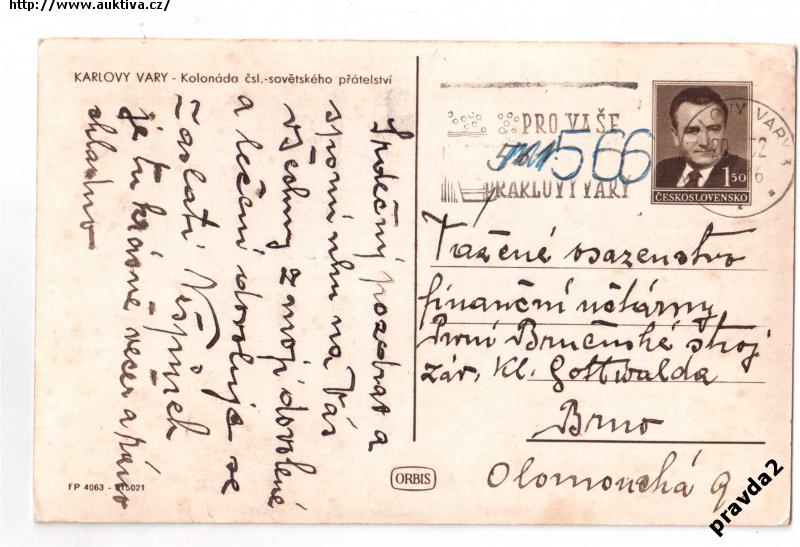 http://www.auktiva.cz/
KARLOVY VARY - Kolonáda čsl.-sovětského přátelství
Srdečný pozdrav a
na Vás
všechny z mojí dovolené
a léčení dovoluje se
zaslati
je tu krásně večer a ráno
chladno
PRO VAŠE
KARLOVY VARY
566
KARLOVY VARY 3
1 50
ČESKOSLOVENSKO
Vážené osazenstvo
finanční účtárny
První Brněnské stroj
záv. Kl. Gottwalda
Brno
Olomoucká 9
FP 4063 - 615021
ORBIS
pravda2